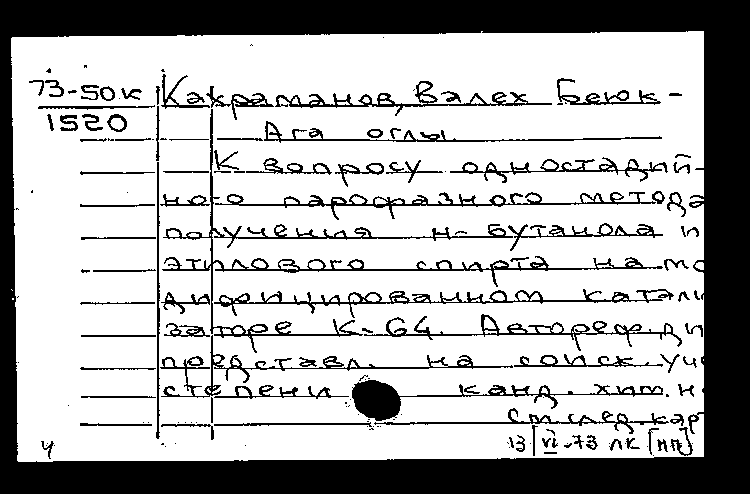 73-50к
1520
Кахраманов, Валех Беюк-
Ага оглы.
К вопросу одностадий-
ного парофазного метода
получения н-бутанола и
этилового спирта на мо
дифицированном катали
заторе К-64. Автореф. ди
представл. на соиск. уче
степени канд. хим. н
См. след. кар
ч 13/VI-73 ЛК [НП]